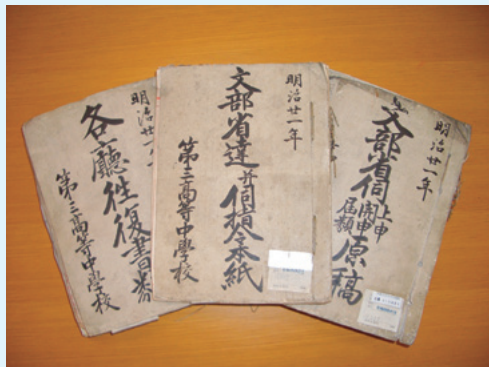 明治廿一年
各廳往復書類
第三高等中學校
明治廿一年
文部省達并伺指令本紙
第三高等中學校
明治廿一年
文部省伺上申開申届類原稿